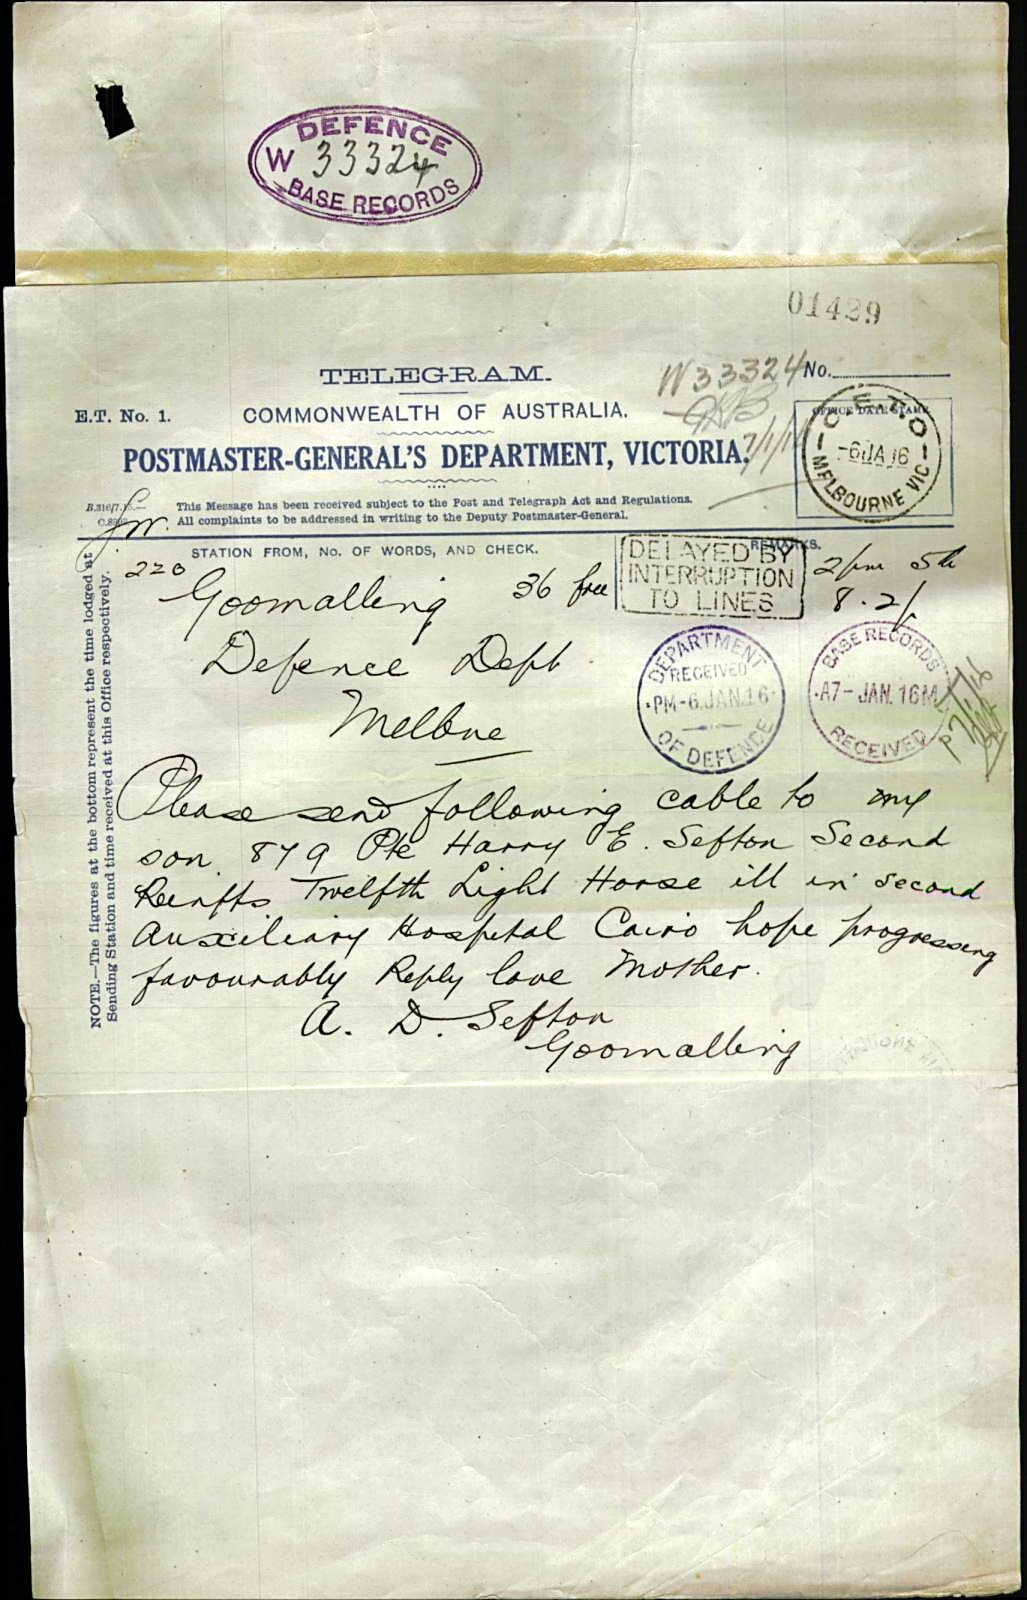 DEFENCE
W 33324
BASE RECORDS
01429
TELEGRAM.
W 33324 No.
E.T. No. 1.
COMMONWEALTH OF AUSTRALIA.
7/1/16
OFFICE DATE STAMP
C.E.T.O
-6 JA 16
MELBOURNE VIC
POSTMASTER-GENERAL'S DEPARTMENT, VICTORIA.
This Message has been received subject to the Post and Telegraph Act and Regulations.
All complaints to be addressed in writing to the Deputy Postmaster-General.
STATION FROM, No. OF WORDS, AND CHECK.
REMARKS.
DELAYED BY
INTERRUPTION
TO LINES
220
Goomalling 36 free
2/pm 5th
8.2/
Defence Dept
Melbne
DEPARTMENT
RECEIVED
PM-6.JAN.16
OF DEFENCE
BASE RECORDS
A7-JAN.16M
RECEIVED
7/1/16
Please send following cable to my
son 879 Pte Harry E. Sefton Second
Reinfts Twelfth Light Horse ill in second
Auxiliary Hospital Cairo hope progressing
favourably Reply love Mother.
A. D. Sefton
Goomalling
NOTE.—The figures at the bottom represent the time lodged at
Sending Station and time received at this Office respectively.